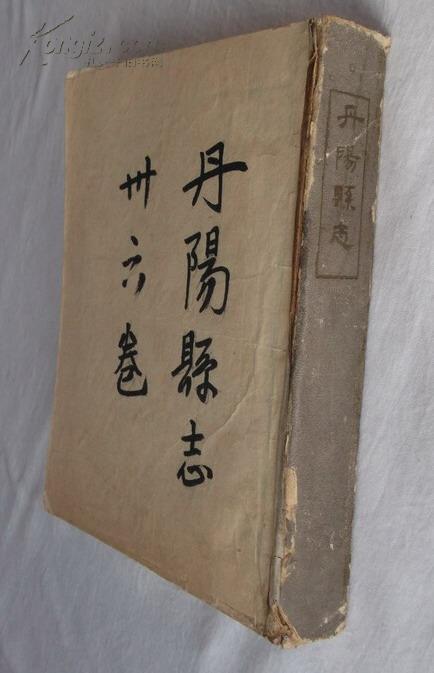 丹陽縣志
卅六卷
丹陽縣志
Kongfz.com
孔夫子旧书网